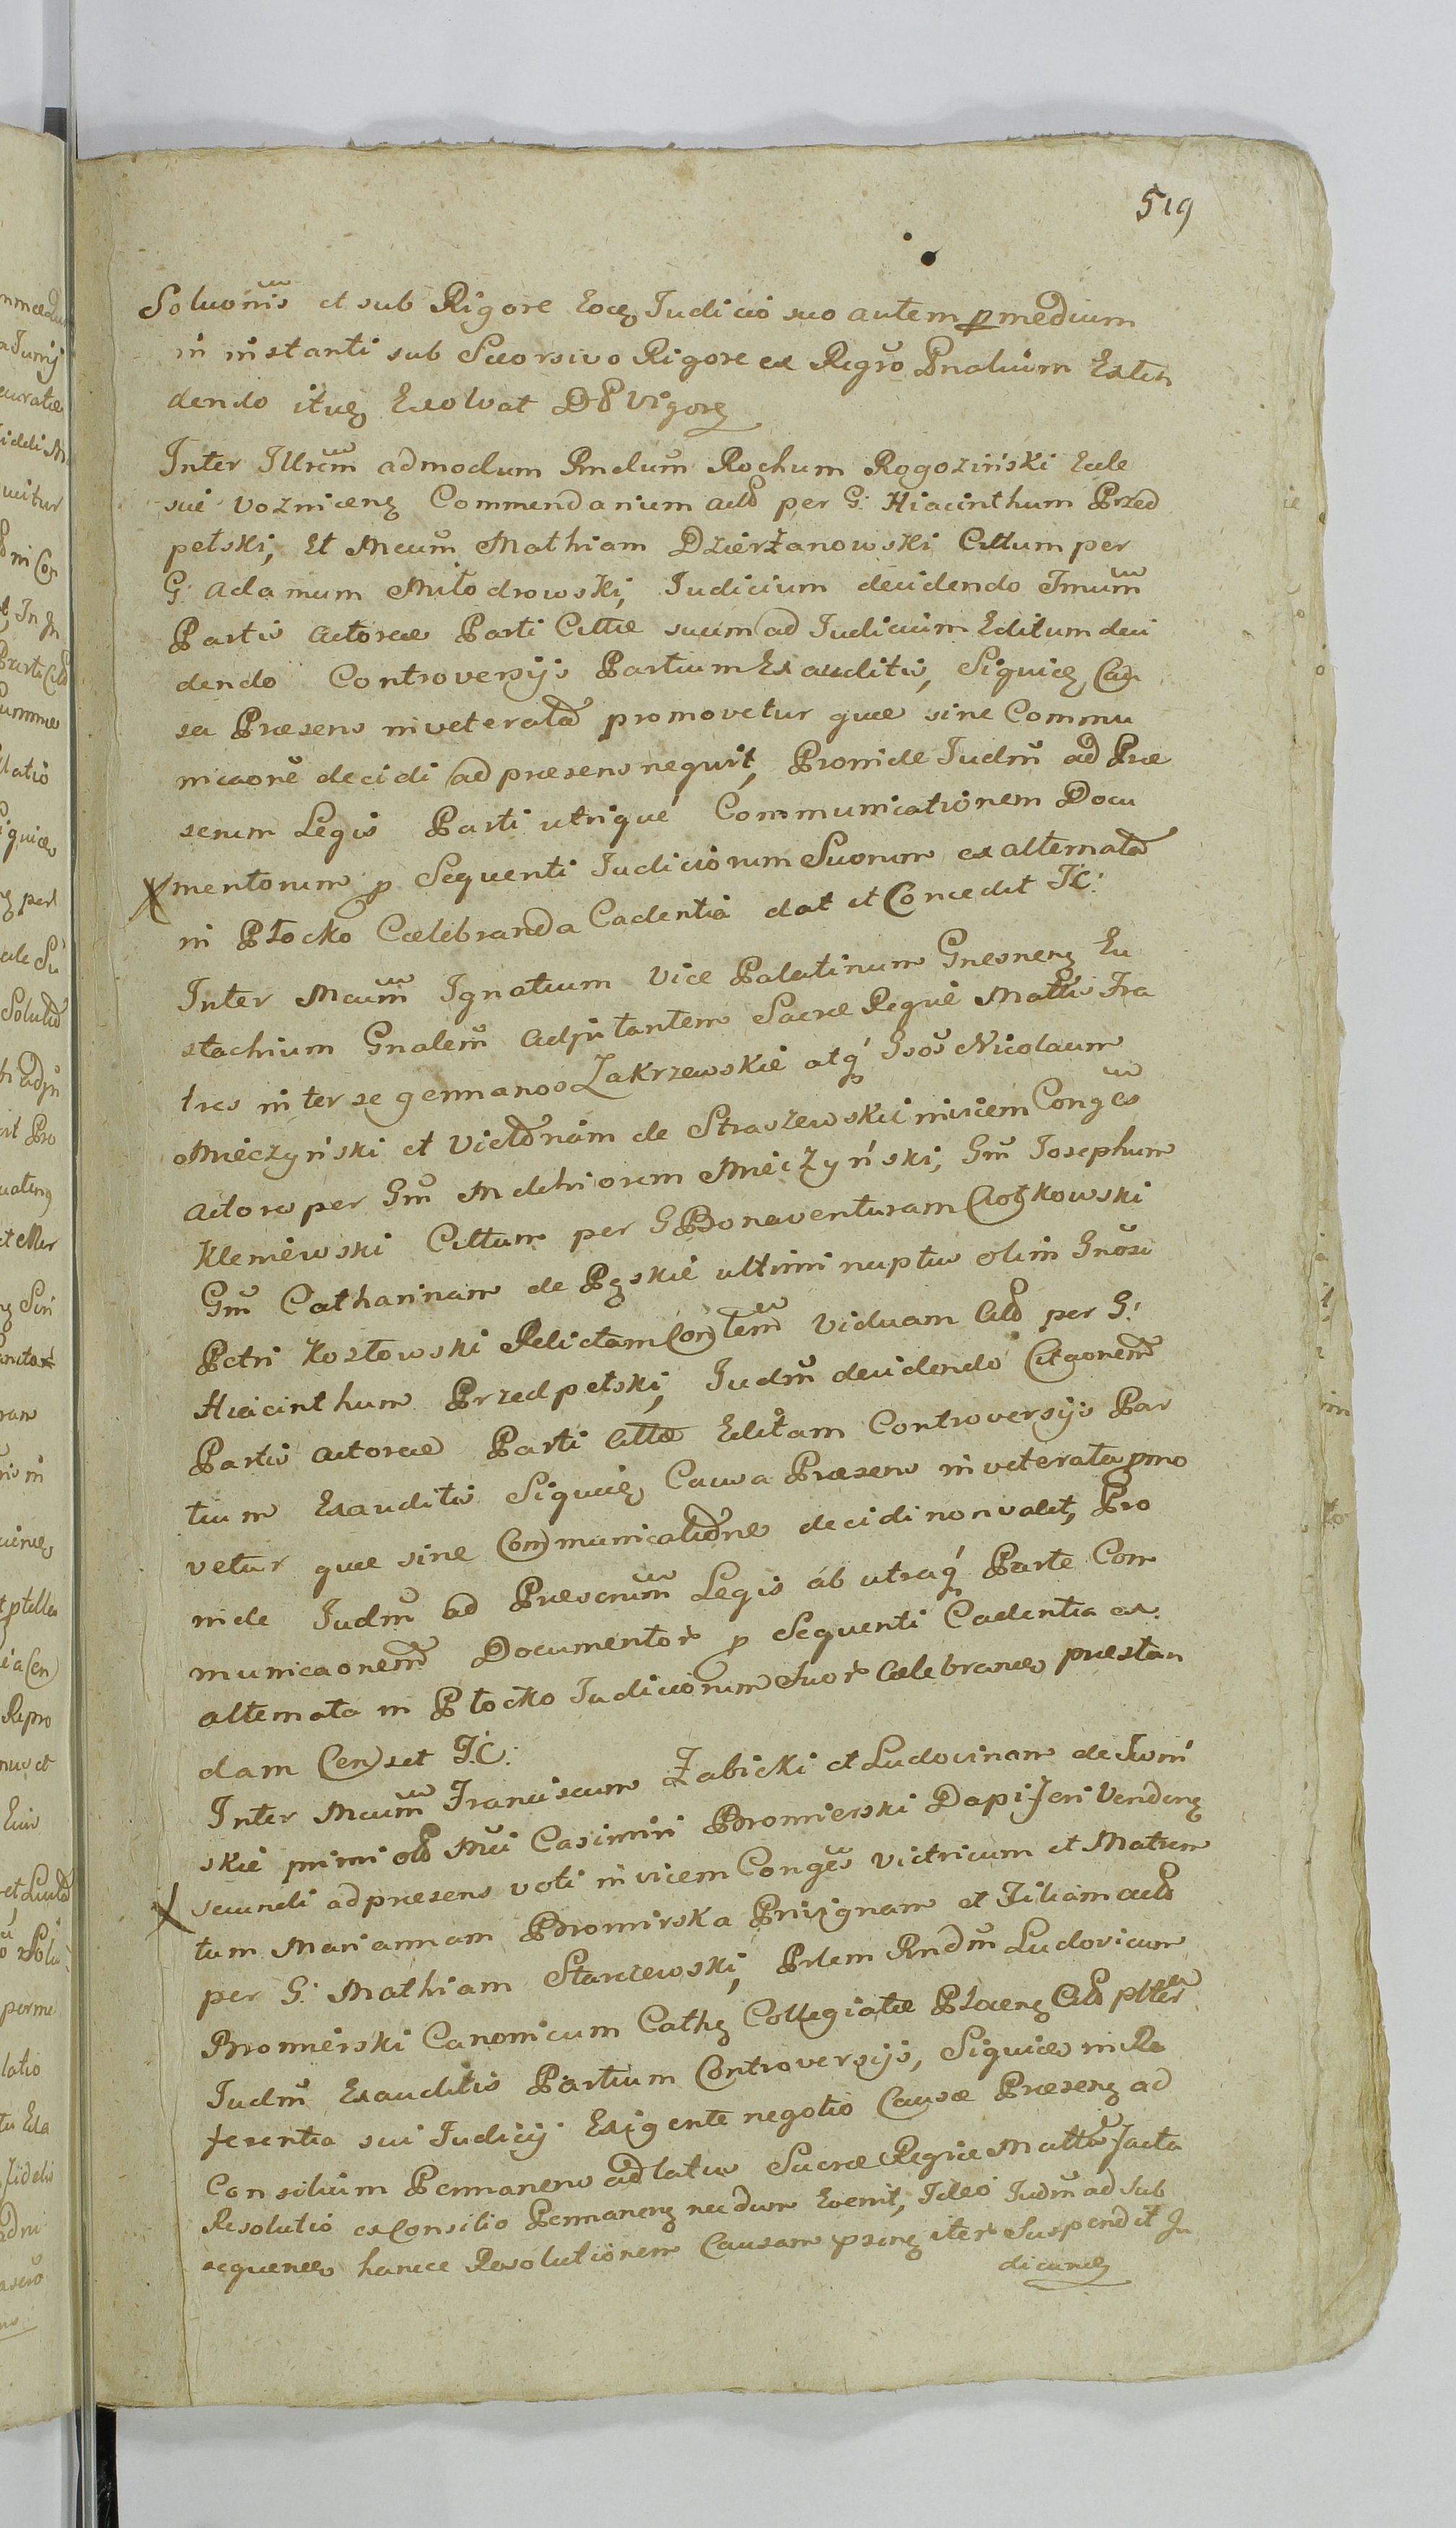 519
Soluonis et sub Rigore Eoq Judicio suo autem p medium
in instanti sub Seorsivo Rigore ex Regro Pnalium Exten
dendo itq Exolvat D8 Vigore
Inter Illrem admodum Rndum Rochum Rogoziński Eccle
siæ Vozniceng Commendarium actō per G: Hiacinthum Przed
pełski, Et Mcum Mathiam Dzierżanowski Cittum per
G: adamum Miłodrowski, Judicium decidendo Tmum
Partis actoreæ Parti Cittæ suum ad Judicium Editum deci
dendo Controversijs Partium Exauditis, Siquiq Cau
sa Præsens inveterata promovetur quæ sine Commu
nicaone decidi ad præsens nequit, Proinde Judm ad Præ
scrum Legis Parti utrique Communicationem Docu
mentorum p Sequenti Judiciorum Suorum ex alternata
in Płocko Cælebranda Cadentia dat et Concedit JC:
Inter Mcum Ignatium Vice Palatinum Gnesneng Eu
stachium Gnalem Adjutantem Sacræ Regiæ Mattis Fra
tres inter se germanos Zakrzewskie atq Gsos Nicolaum
Mieczyński et Victonam de Straszewskie invicem Conges
actores per Gm Melchiorem Mieczyński, Gm Josephum
Kleniewski Cittum per G Bonaventuram Cłotkowski
Gm Catharinam de Pgskie ultimi nuptus olim Gnosi
Petri Kozłowski Relictam Contem Viduam Citō per G:
Hiacinthum Przedpełski, Judm decidendo Citaonem
Partis actoreæ Parti Cittæ Editam Controversijs Par
tium Exauditis Siquiq Causa Præsens inveterata pmo
vetur quæ sine Communicatione decidi non valet, Pro
inde Judm ad Præscrum Legis ab utraq Parte Com
municaonem Documentor p Sequenti Cadentia ex
alternata in Płocko Judiciorum Suor Cælebrang præstan
dam Censet JC:
Inter Mcum Franciscum Żabicki et Ludovinam de Tumi
skie primi oto Mci Casimiri Bromierski Dapiferi Vendeng
secundi ad præsens voti invicem Conges Victricum et Matrem
tum Mariannam Bromirska Privignam et Filiam actō
per G: Mathiam Starczewski, Prlem Rndm Ludovicum
Bromierski Canonicum Cathg Collegiatæ Płoceng Citō ptter
Judm Exauditis Partium Controversijs, Siquiq in Re
ferentia sui Judicij Exigente negotio Causæ Præseng ad
Consilium Permanens ad latus Sacræ Regiæ Mattis facta
Resolutio ex Consilio Permaneng necdum Evenit, Ideo Judm ad Sub
sequeng hancce Resolutionem Causam prseng iter Suspendit Ju
dicanq